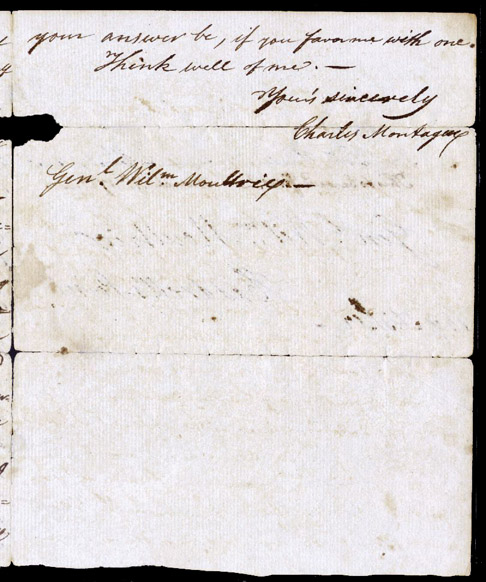 your answer be, if you favor me with one.
Think well of me. —
Your's sincerely
Charles Montague
Gen.l Wil.m Moultrie —